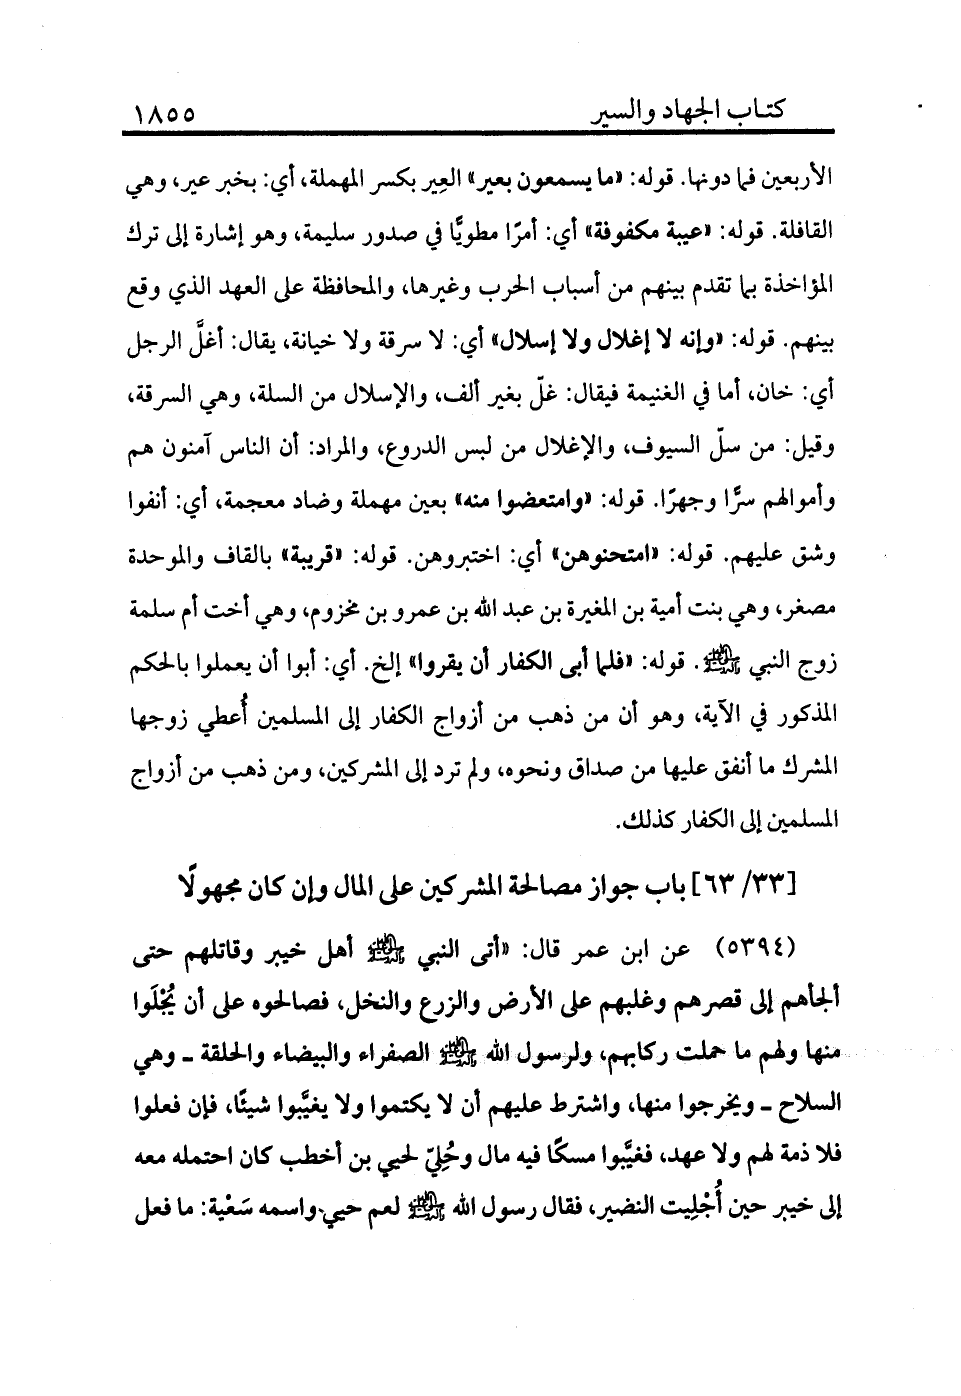 كتاب الجهاد والسير ١٨٥٥
الأربعين فما دونها. قوله: «ما يسمعون بعير» العِير بكسر المهملة، أي: بخبر عير، وهي
القافلة. قوله: «عيبة مكفوفة» أي: أمرًا مطويًّا في صدور سليمة، وهو إشارة إلى ترك
المؤاخذة بما تقدم بينهم من أسباب الحرب وغيرها، والمحافظة على العهد الذي وقع
بينهم. قوله: «وإنه لا إغلال ولا إسلال» أي: لا سرقة ولا خيانة، يقال: أغلَّ الرجل
أي: خان، أما في الغنيمة فيقال: غلّ بغير ألف، والإسلال من السلة، وهي السرقة،
وقيل: من سلّ السيوف، والإغلال من لبس الدروع، والمراد: أن الناس آمنون هم
وأموالهم سرًّا وجهرًا. قوله: «وامتعضوا منه» بعين مهملة وضاد معجمة، أي: أنفوا
وشق عليهم. قوله: «امتحنوهن» أي: اختبروهن. قوله: «قريبة» بالقاف والموحدة
مصغر، وهي بنت أمية بن المغيرة بن عبد الله بن عمرو بن مخزوم، وهي أخت أم سلمة
زوج النبي ﷺ. قوله: «فلما أبى الكفار أن يقروا» إلخ. أي: أبوا أن يعملوا بالحكم
المذكور في الآية، وهو أن من ذهب من أزواج الكفار إلى المسلمين أُعطي زوجها
المشرك ما أنفق عليها من صداق ونحوه، ولم ترد إلى المشركين، ومن ذهب من أزواج
المسلمين إلى الكفار كذلك.
[٦٣/٣٣] باب جواز مصالحة المشركين على المال وإن كان مجهولًا
(٥٣٩٤) عن ابن عمر قال: «أتى النبي ﷺ أهل خيبر وقاتلهم حتى
ألجأهم إلى قصرهم وغلبهم على الأرض والزرع والنخل، فصالحوه على أن يُجْلَوا
منها ولهم ما حملت ركابهم، ولرسول الله ﷺ الصفراء والبيضاء والحلقة - وهي
السلاح - ويخرجوا منها، واشترط عليهم أن لا يكتموا ولا يغيَّبوا شيئًا، فإن فعلوا
فلا ذمة لهم ولا عهد، فغيَّبوا مسكًا فيه مال وحُلِيّ لحيي بن أخطب كان احتمله معه
إلى خيبر حين أُجْلِيت النضير، فقال رسول الله ﷺ لعم حيي واسمه سَعْية: ما فعل